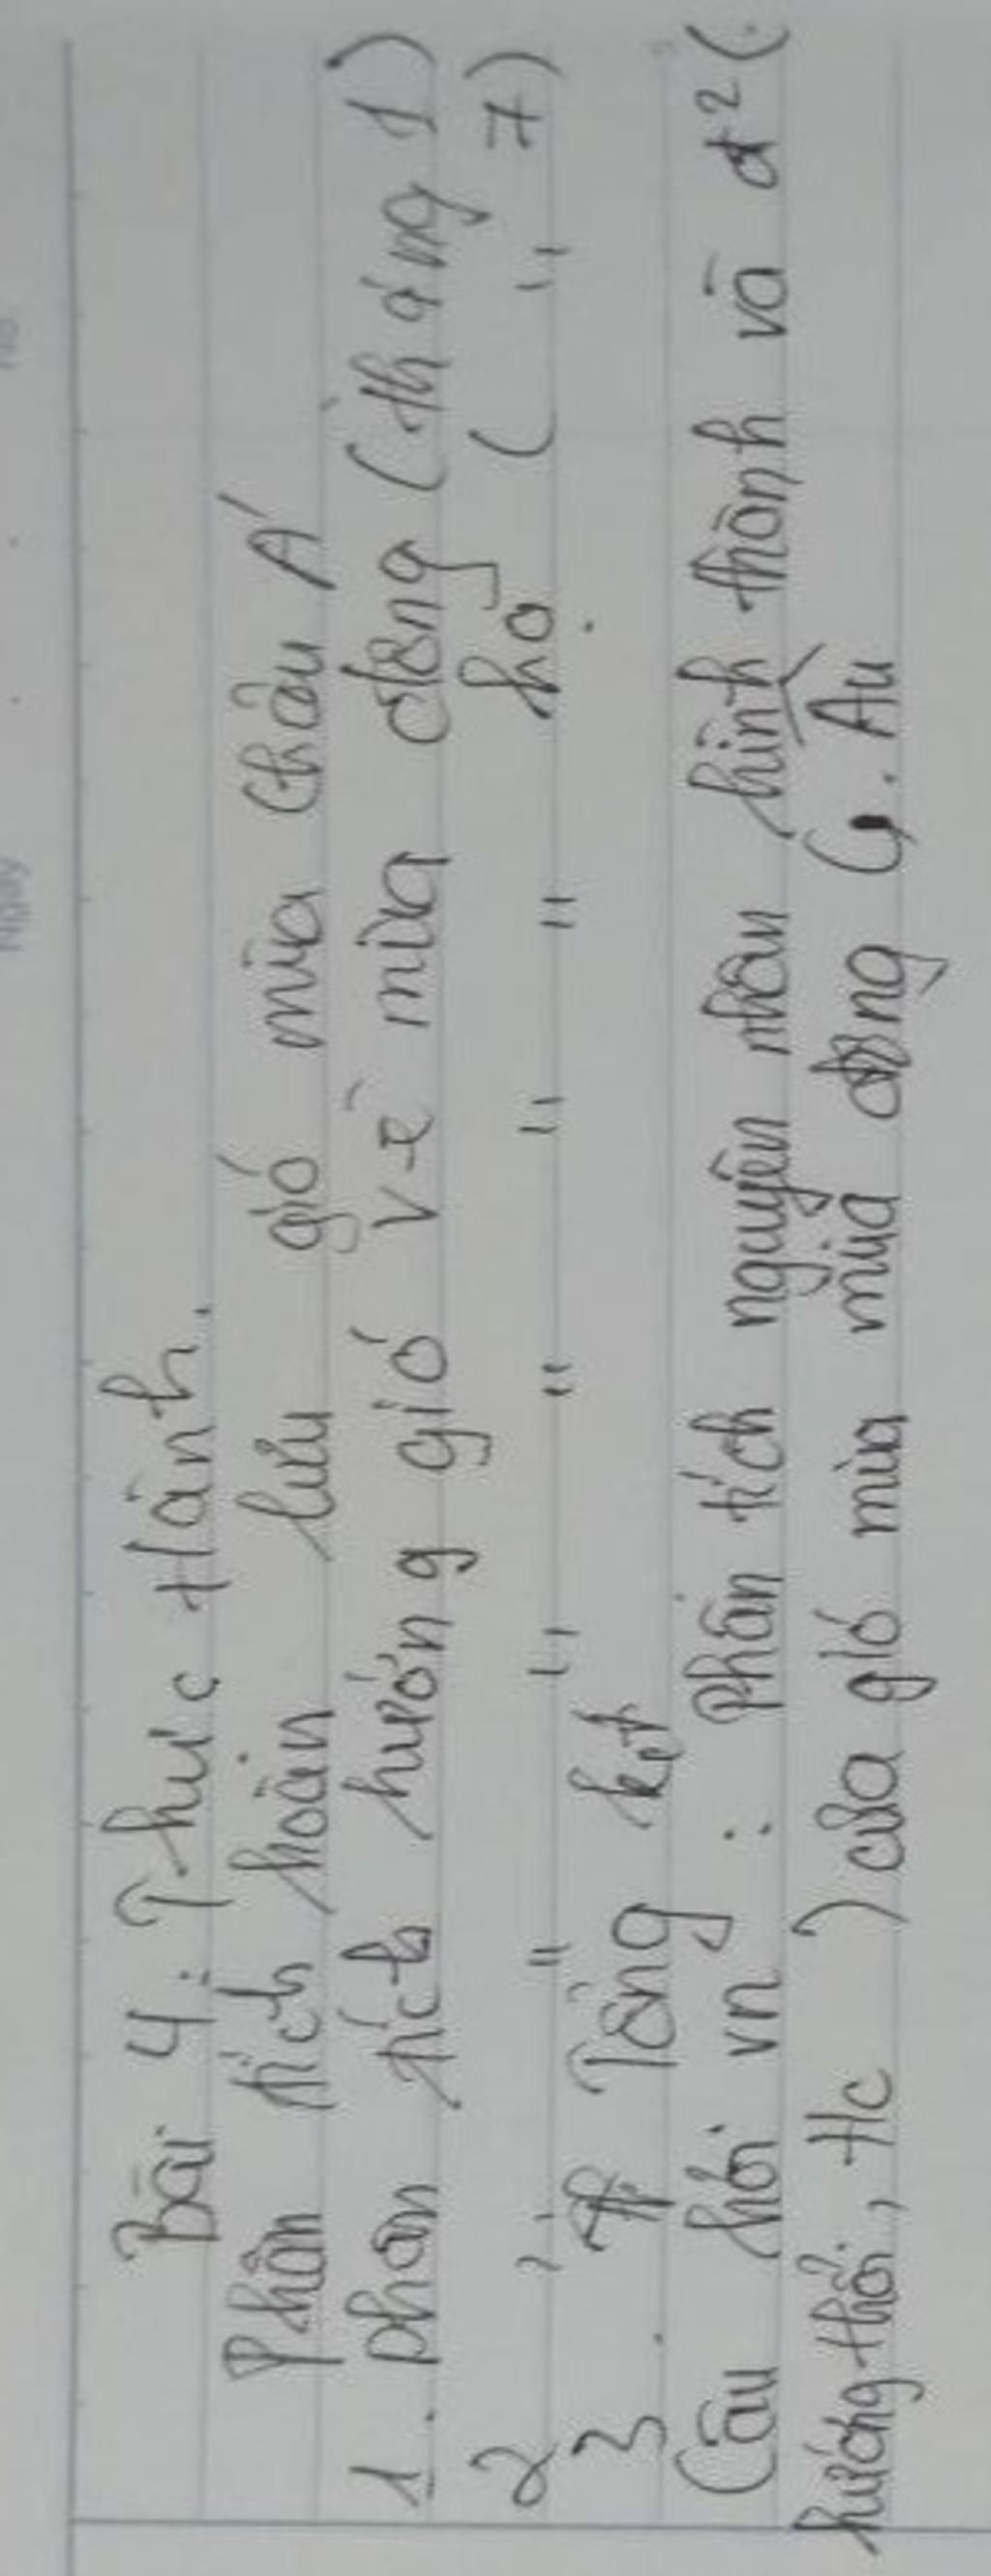 Bài 4: Thực Hành.
Phân tích hoàn lưu gió mùa Châu Á
1. phân tích hướng gió về mùa đông (tháng 1)
2 " " " " " " hạ ( " 7)
3. Tổng kết
Câu hỏi vn: Phân tích nguyên nhân hình thành và đ² (
hướng thổi, Hc ) của gió mùa mùa đông Á. Âu